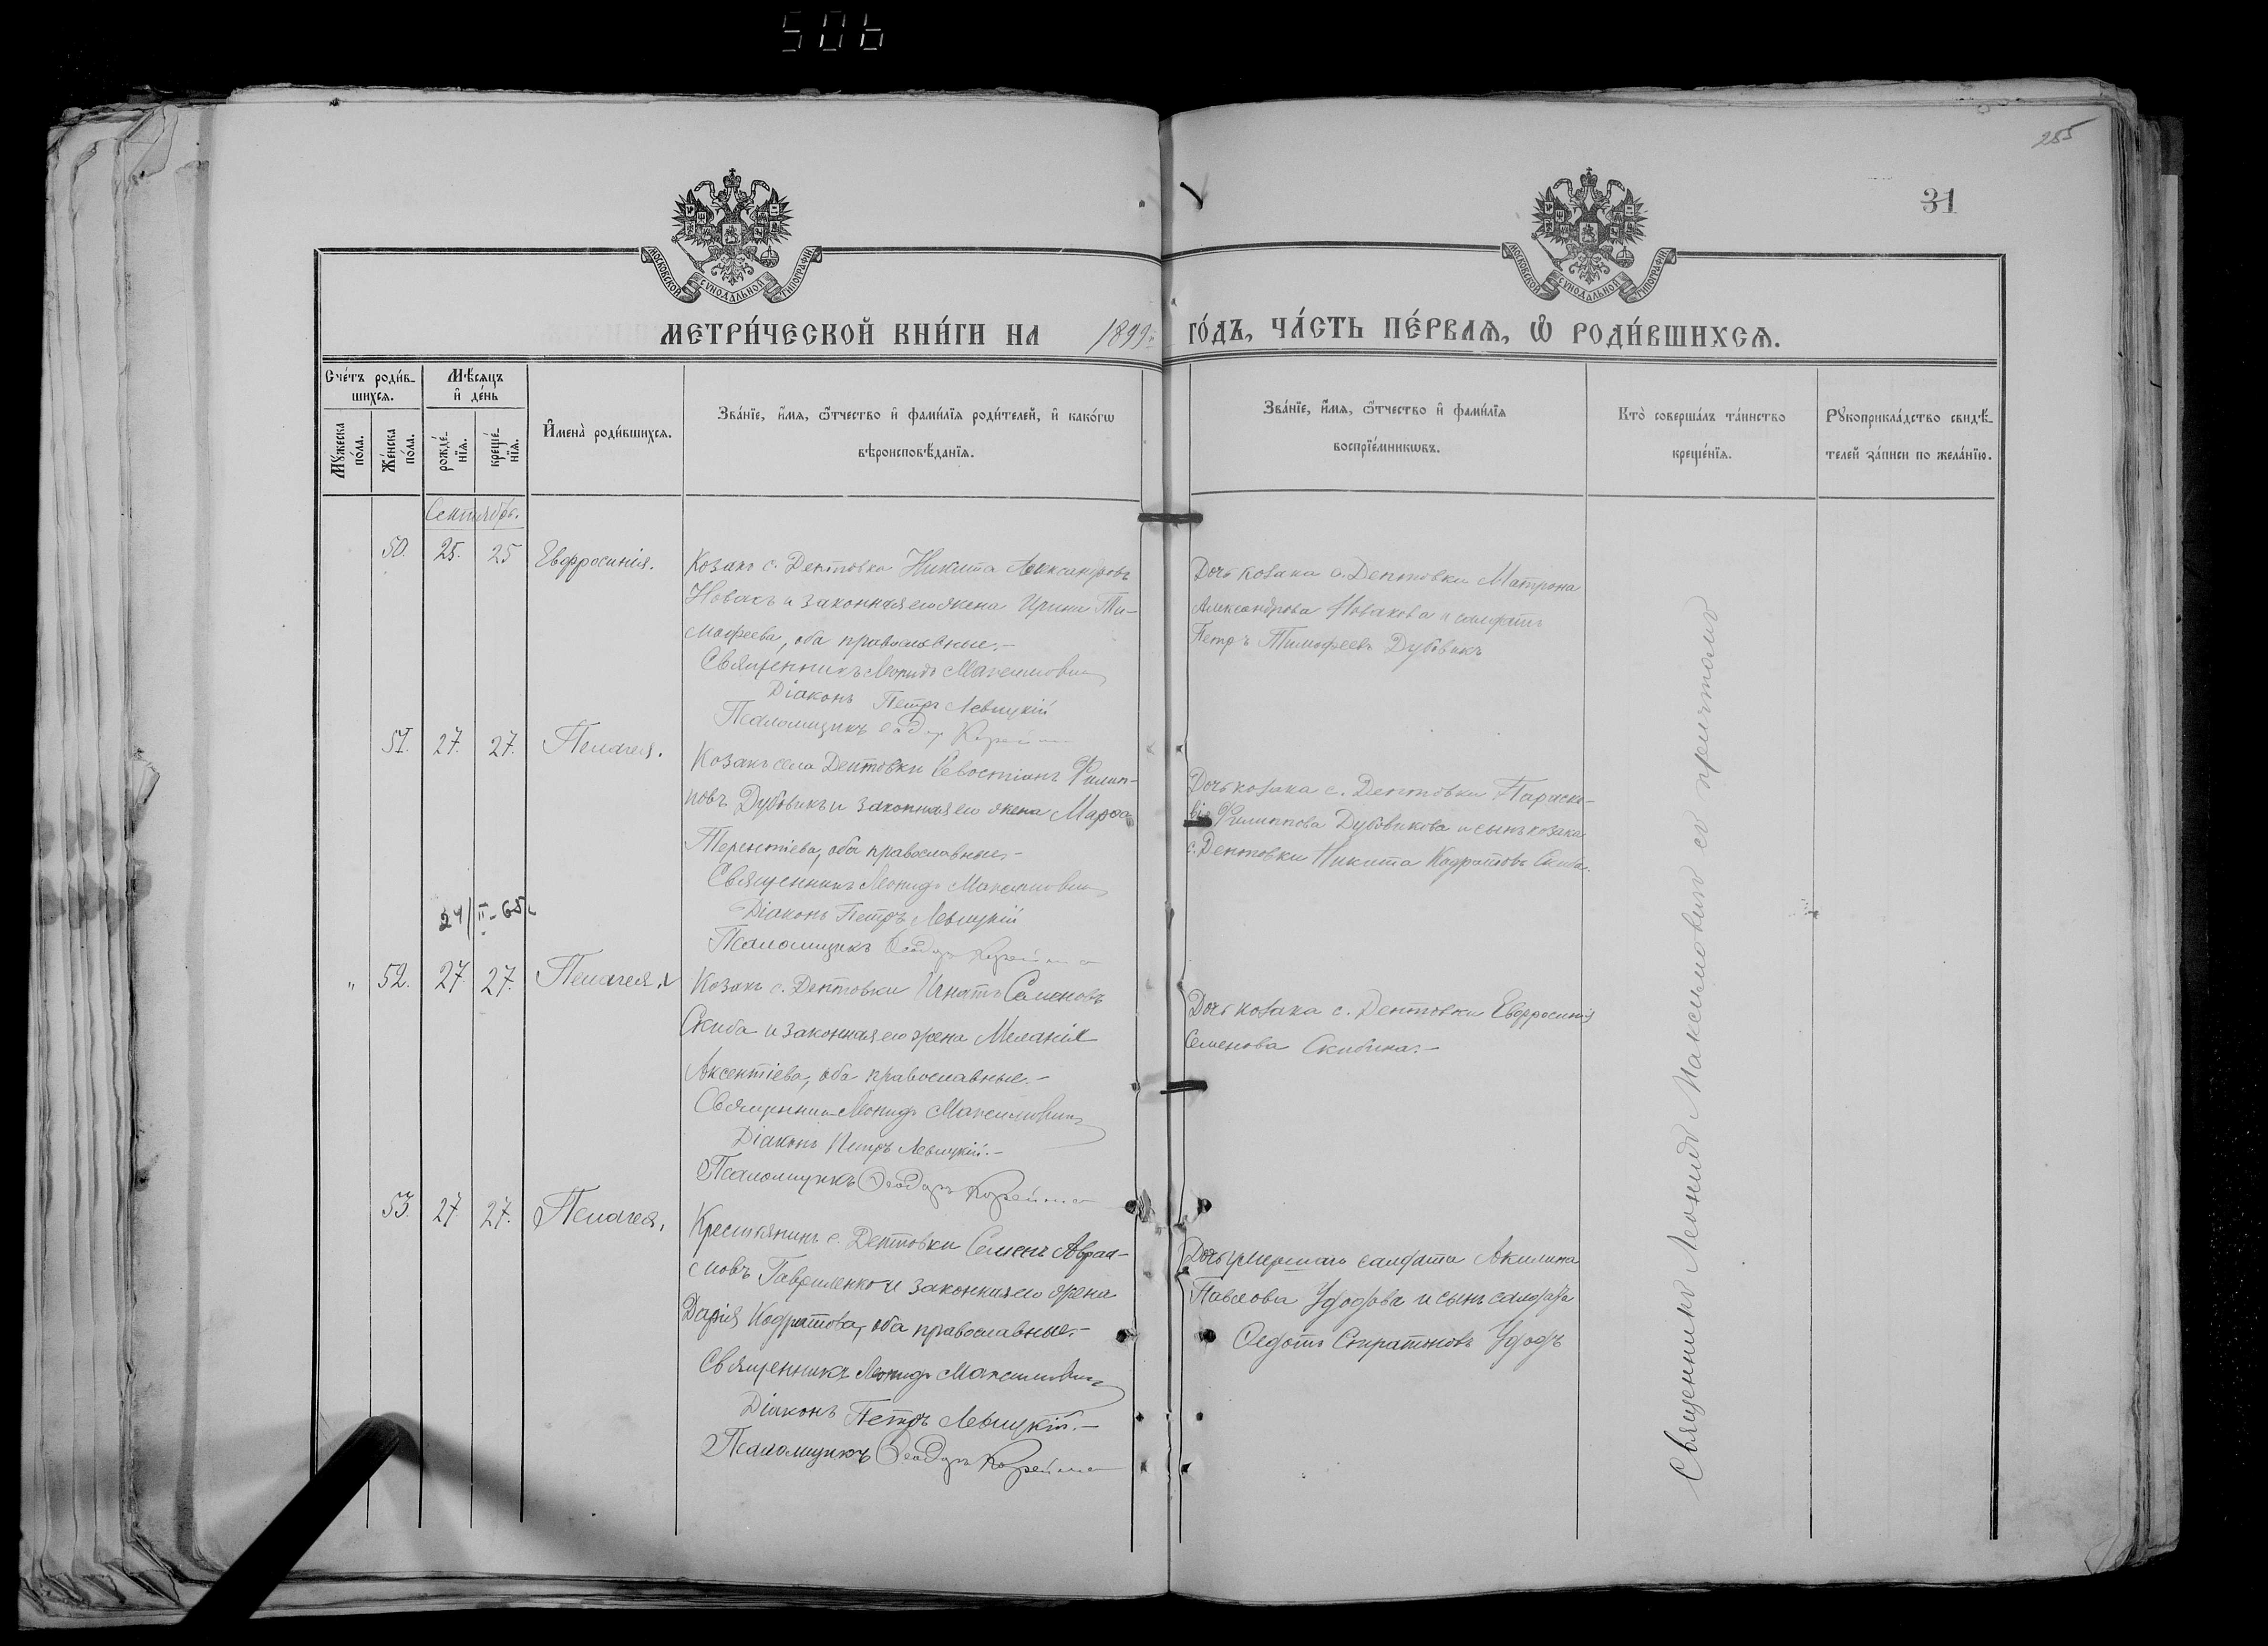 506
255
31
МОСКОВСКОЙ СУНОДАЛЬНОЙ ТИПОГРАФІИ
МОСКОВСКОЙ СУНОДАЛЬНОЙ ТИПОГРАФІИ
МЕТРИ́ЧЕСКОЙ КНИ́ГИ НА 1899й ГО́ДЪ, ЧА́СТЬ ПЕ́РВАѦ, Ѡ҆ РОДИ́ВШИХСѦ.
Сче́тъ роди́в-
шихсѧ.
Мꙋ́жеска по́ла.
Же́нска по́ла.
Мѣ́сяцъ
и҆ де́нь
рожде́-
нїѧ.
креще́-
нїѧ.
И҆мена̀ роди́вшихсѧ.
Зва́нїе, и҆́мѧ, ѻ҆́тчество и҆ фами́лїѧ роди́телей, и҆ како́гѡ
вѣроисповѣ́данїѧ.
Зва́нїе, и҆́мѧ, ѻ҆́тчество и҆ фами́лїѧ
воспрїе́мникѡвъ.
Кто̀ соверша́лъ та́инство
креще́нїѧ.
Рꙋкоприкла́дство свидѣ́-
телей за́писи по жела́нїю.
Сентябрь.
50. 25. 25 Евфросинія.
Козакъ с. Дептовки Никита Александровъ
Новакъ и законная его жена Ирина Ти-
мофеева, оба православные.-
Священникъ Леонидъ Максимовичъ
Діаконъ Петръ Левицкій
Псаломщикъ Ѳеодоръ
Дочь козака с. Дептовки Матрона
Александрова Новакова и солдатъ
Петръ Тимофеевъ Дубовикъ
51. 27. 27. Пелагея.
Козакъ села Дептовки Севостіанъ Филип-
повъ Дубовикъ и законная его жена Марѳа
Терентіева, оба православные.-
Священникъ Леонидъ Максимовичъ
Діаконъ Петръ Левицкій
Псаломщикъ Ѳеодоръ
Дочь козака с. Дептовки Параске-
вія Филиппова Дубовикова и сынъ козака
с. Дептовки Никита Кодратовъ Скиба.
24/II-65
" 52. 27. 27. Пелагея.
Козакъ с. Дептовки Игнатъ Семеновъ
Скиба и законная его жена Меланія
Аксентіева, оба православные.-
Священникъ Леонидъ Максимовичъ
Діаконъ Петръ Левицкій.-
Псаломщикъ Ѳеодоръ
Дочь козака с. Дептовки Евфросинія
Семенова Скибина.-
53. 27. 27. Пелагея.
Крестьянинъ с. Дептовки Семенъ Авраа-
мовъ Гавриленко и законная его жена
Дарія Кодратова, оба православные.-
Священникъ Леонидъ Максимовичъ
Діаконъ Петръ Левицкій.-
Псаломщикъ Ѳеодоръ
Дочь умершаго солдата Акилина
Павлова Удодова и сынъ солдата
Ѳедотъ Удодъ
Священникъ Леонидъ Максимовичъ съ причтомъ